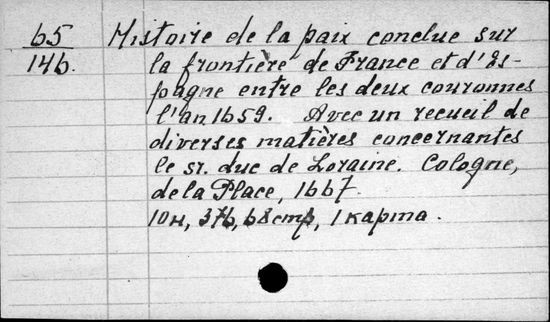 65 Histoire de la paix conclue sur
146. la frontière de France et d'Es-
pagne entre les deux couronnes
l'an 1659. Avec un recueil de
diverses matières concernantes
le sr. duc de Loraine. Cologne,
de la Place, 1667.
10н, 376, 68 стр, 1 карта.